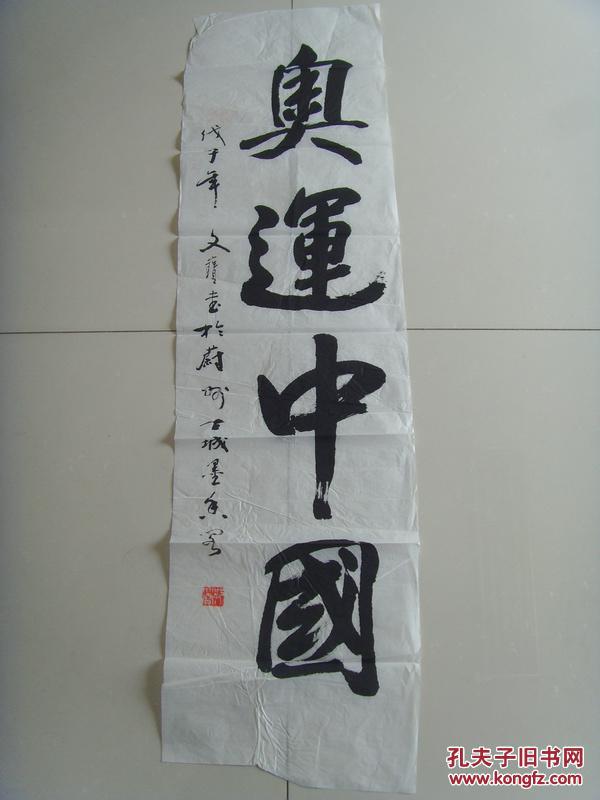 奥運中國
戊子年 文寶書於蔚州古城墨香閣
孔夫子旧书网
www.kongfz.com